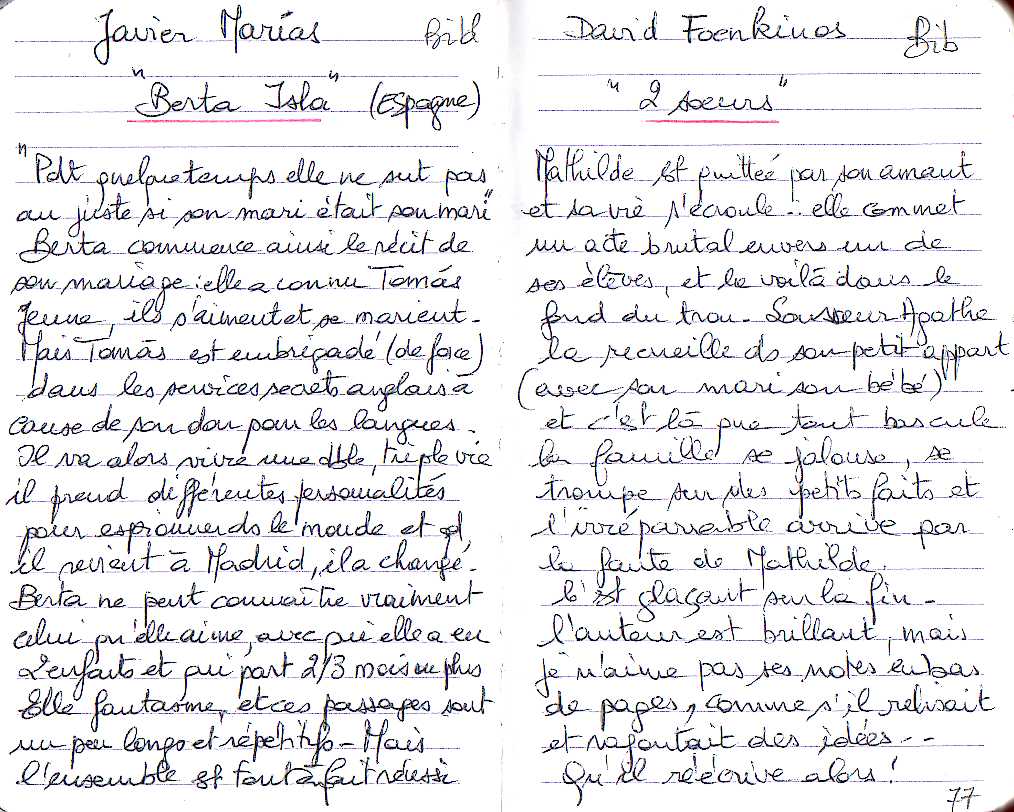 Javier Marías Bibl
"Berta Isla" (Espagne)
"Pdt quelque temps elle ne sut pas
au juste si son mari était son mari"
Berta commence ainsi le récit de
son mariage : elle a connu Tomás
jeune, ils s'aiment et se marient.
Mais Tomás est embrigadé (de force)
dans les services secrets anglais à
cause de son don pour les langues.
Il va alors vivre une dble, triple vie
il prend différentes personnalités
pour espionner ds le monde et qd
il revient à Madrid, il a changé.
Berta ne peut connaître vraiment
celui qu'elle aime, avec qui elle a eu
2 enfants et qui part 2/3 mois ou plus
Elle fantasme, et ces passages sont
un peu longs et répétitifs - Mais
l'ensemble est tout à fait réussi
David Foenkinos Bib
"2 soeurs"
Mathilde est quittée par son amant
et sa vie s'écroule.. elle commet
un acte brutal envers un de
ses élèves, et la voilà dans le
fond du trou. Sa soeur Agathe
la recueille ds son petit appart
(avec son mari son bébé)
et c'est là que tout bascule
la famille se jalouse, se
trompe sur des petits faits et
l'irréparable arrive par
la faute de Mathilde.
C'est glaçant sur la fin.
L'auteur est brillant, mais
je n'aime pas ses notes en bas
de pages, comme s'il relisait
et rajoutait des idées...
Qu'il réécrive alors !
77